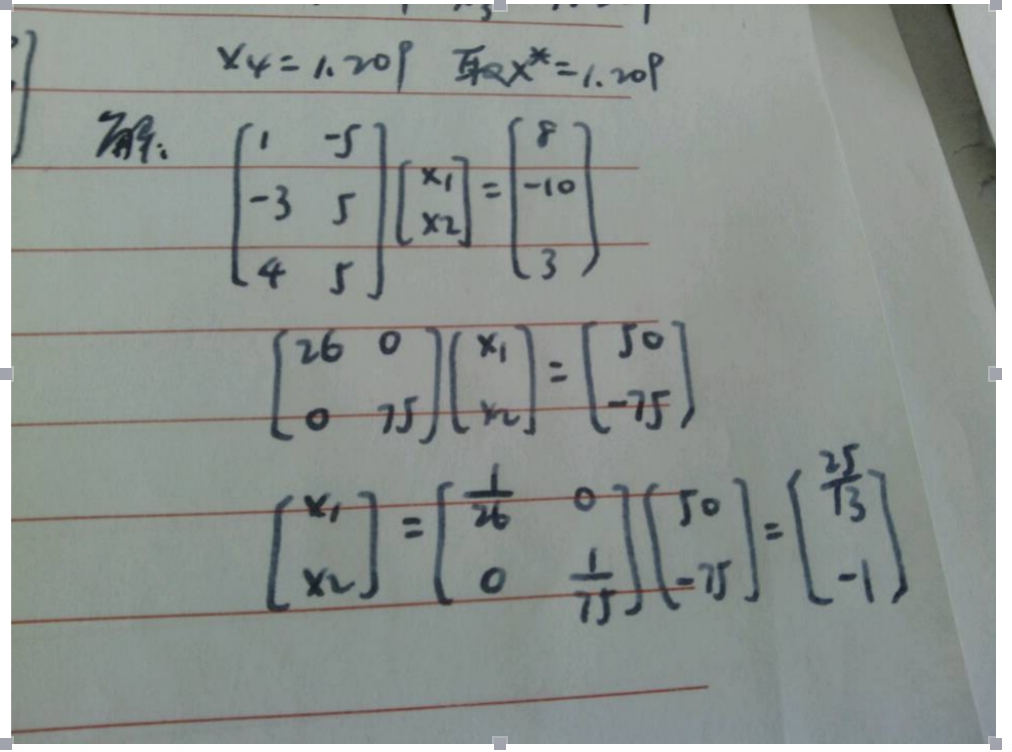 x4=1.209 取x*=1.209
解:
[1 -5
-3 5
4 5] [x1
x2] = [8
-10
3]
[26 0
0 75] [x1
x2] = [50
-75]
[x1
x2] = [1/26 0
0 1/75] [50
-75] = [25/13
-1]